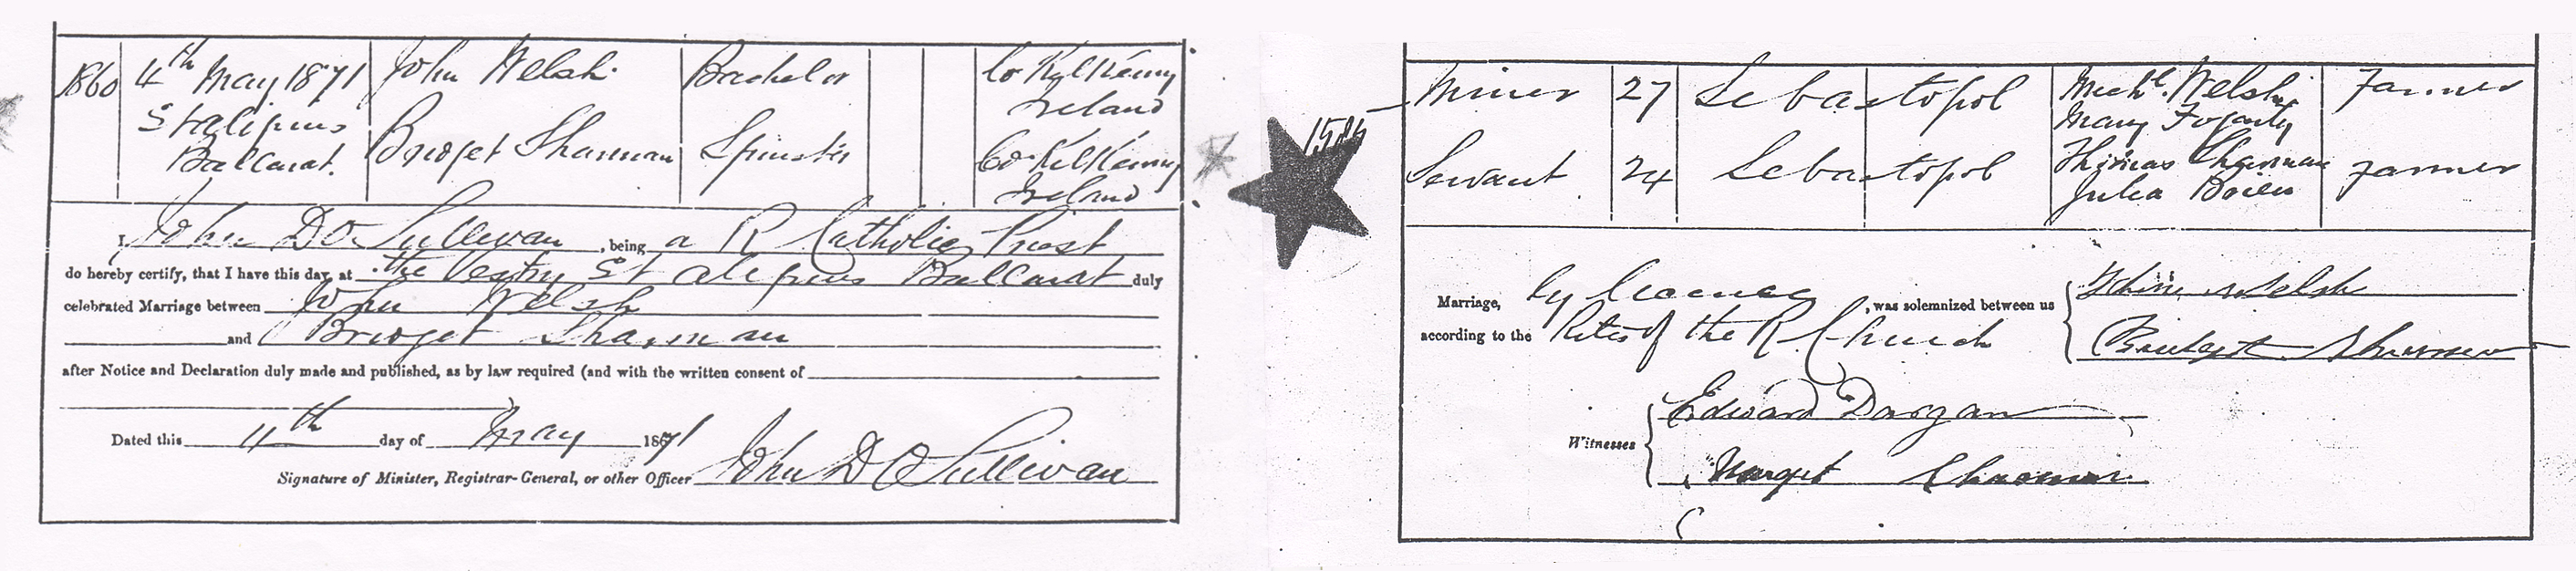 1860 4th May 1871 John Welsh Bachelor Co KylKenny
St Alipius Ireland
Ballarat. Bridget Sharman Spinster Co KilKenny
Ireland
I, John D O Sullivan, being a R Catholic Priest
do hereby certify, that I have this day, at the Vestry St Alipius Ballarat duly
celebrated Marriage between John Welsh
and Bridget Sharman
after Notice and Declaration duly made and published, as by law required (and with the written consent of
Dated this 4th day of May 1871
Signature of Minister, Registrar-General, or other Officer John D O Sullivan
Miner 27 Sebastopol Michl. Welsh Farmer
Mary Fogarty
1585
Servant 24 Sebastopol Thomas Sharman Farmer
Julia Brien
Marriage, by , was solemnized between us John Welsh
according to the Rites of the R Church Bridget Sharman
Edward Dargan
Witnesses
Marget Sharman